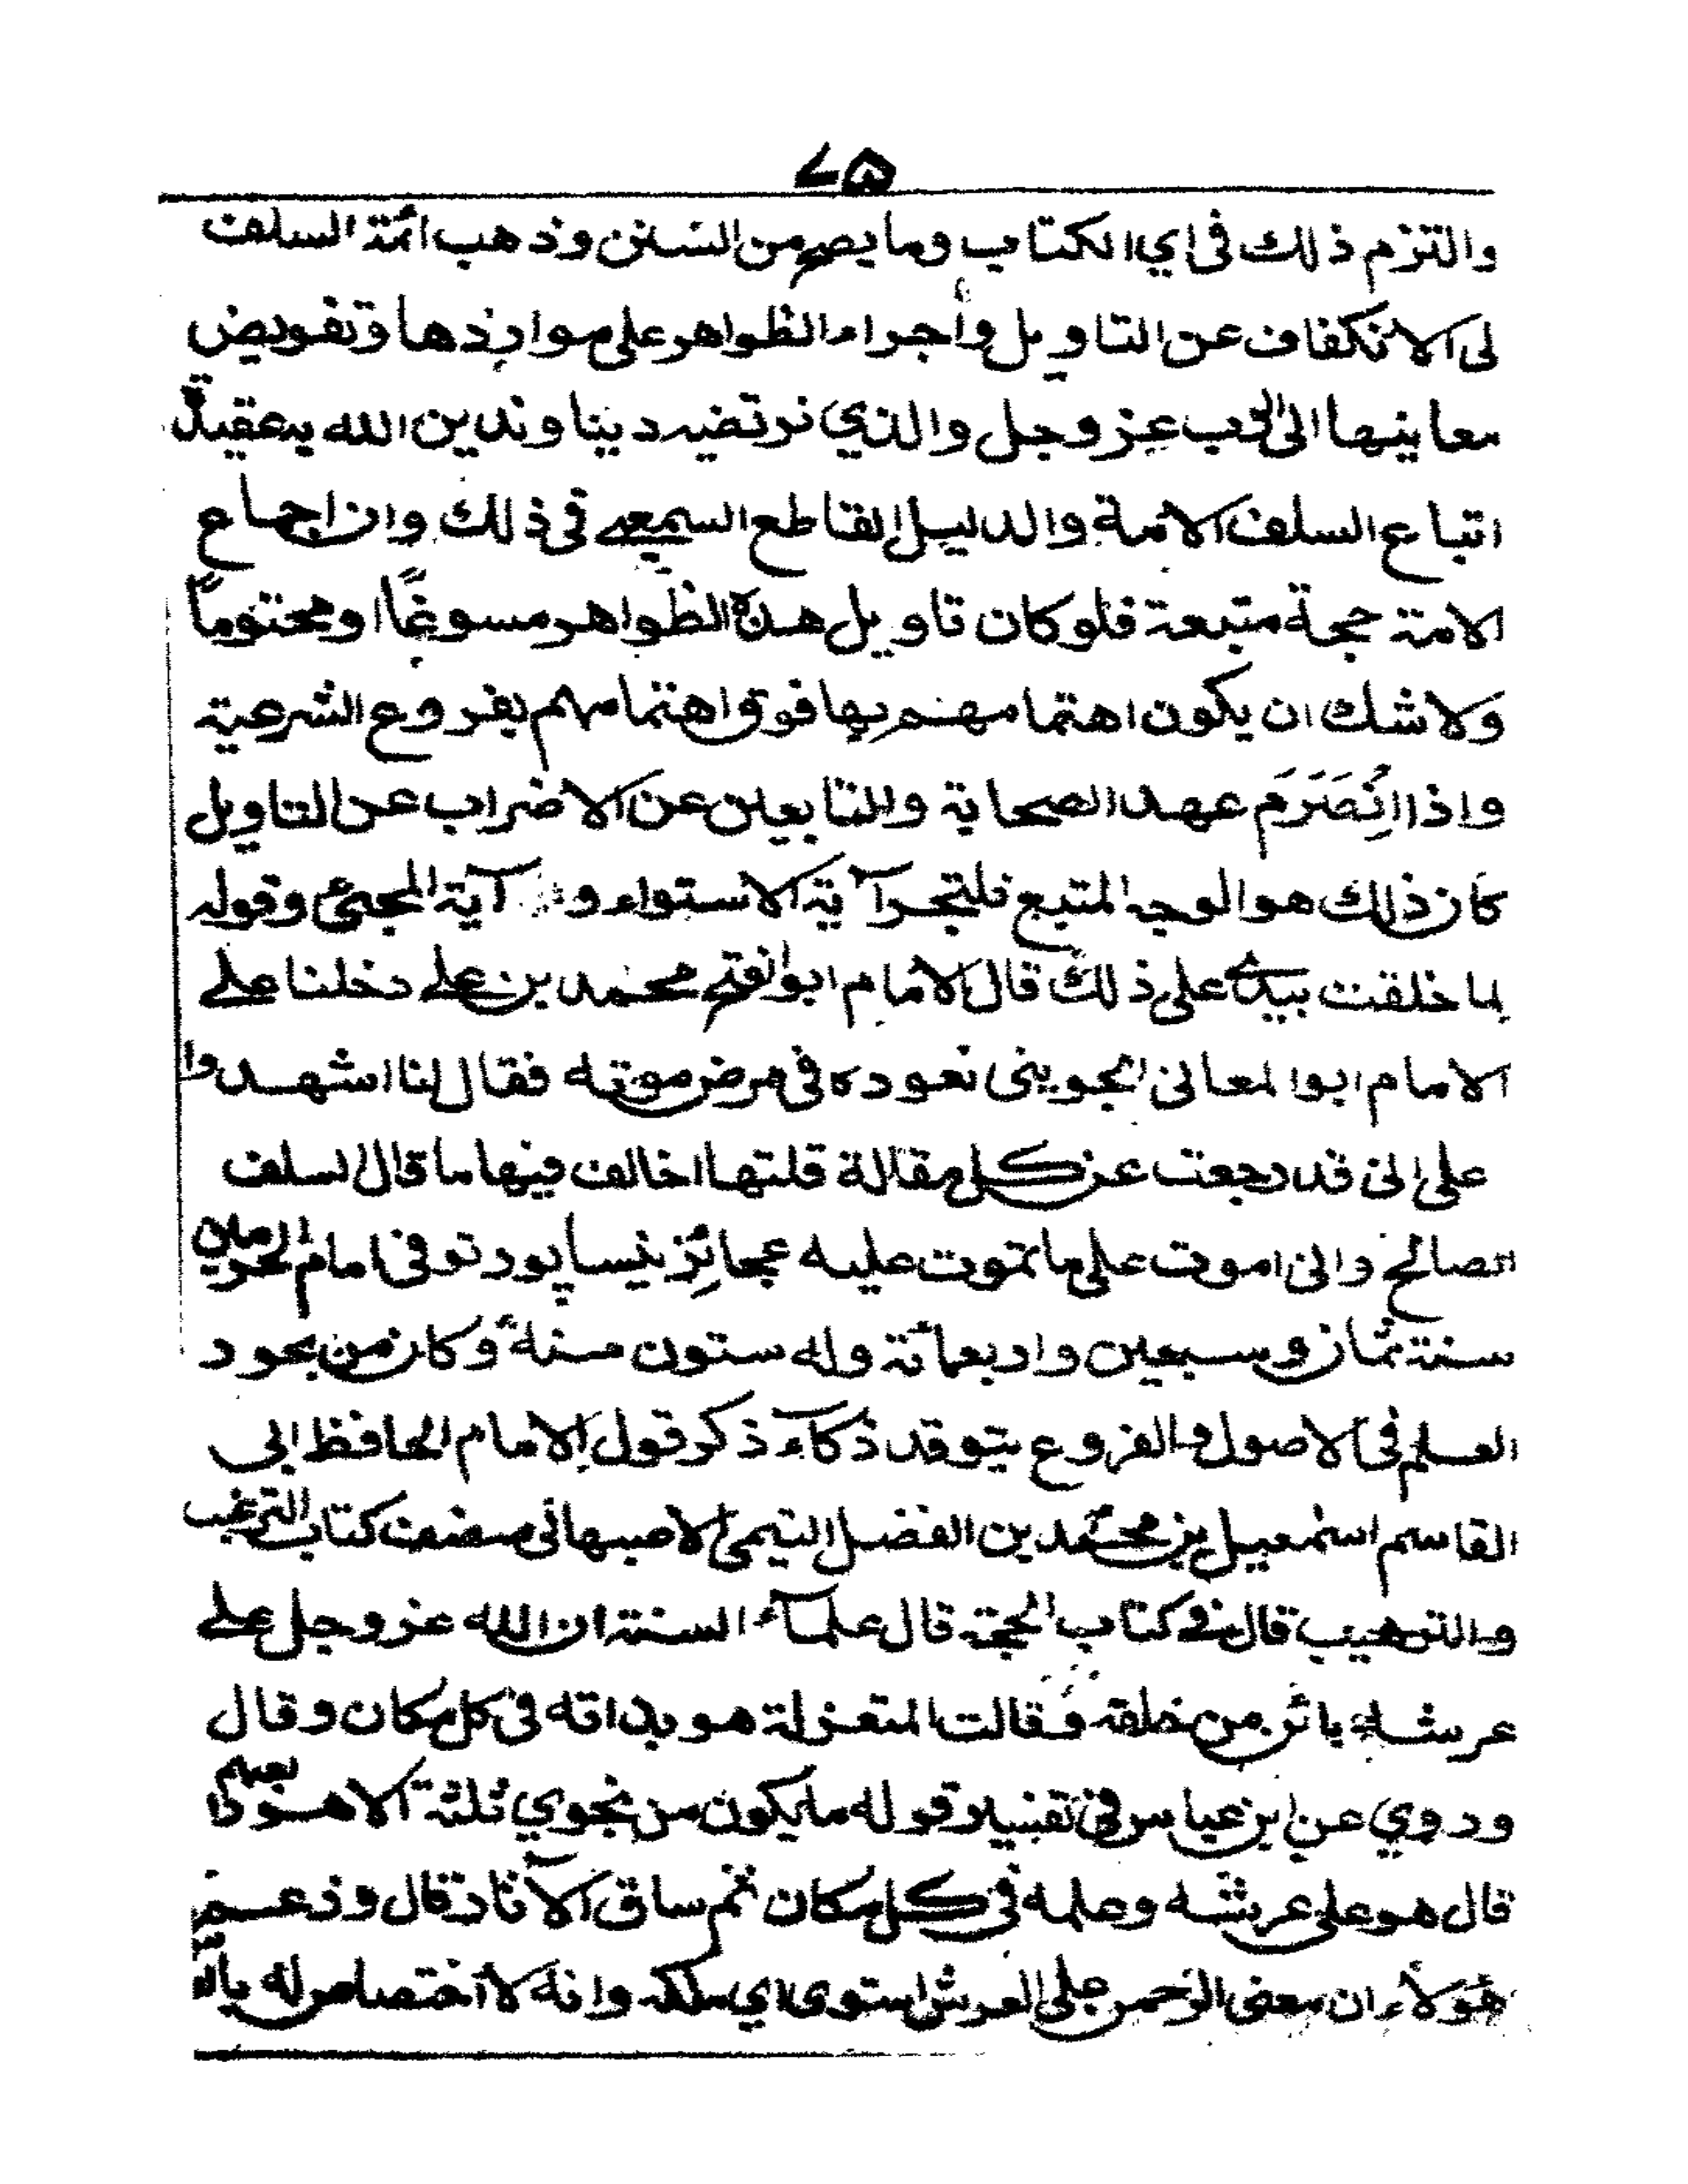 ٧٥
والتزم ذلك في اي الكتاب وما يصح من السنن وذهب ائمة السلف
لى الانكفاف عن التاويل وأجراء الظواهر على مواردها وتفويض
معاينها الى الرب عز وجل والذي نرتضيه دينا وندين الله به عقيدة
اتباع السلف الائمة والدليل القاطع السمعي في ذلك وان اجماع
الامة حجة متبعة فلو كان تاويل هذه الظواهر مسوغًا او محتوماً
ولا شك ان يكون اهتمامهم بها فوق اهتمامهم بفروع الشرعية
واذا انْصَرَمَ عهد الصحابة والتابعين عن الاضراب عن التاويل
كان ذلك هو الوجه المتبع فلتجر آية الاستواء و آية المجئ وقوله
لما خلقت بيدي على ذلك قال الامام ابو الفتح محمد بن علي دخلنا على
الامام ابو المعالى الجوينى نعوده في مرض موته فقال لنا اشهدوا
على انى قد رجعت عن كل مقالة قلتها اخالف فيها ما قال السلف
الصالح وانى اموت على ما تموت عليه عجائز نيسابور توفى امام الحرمين
سنة ثمان وسبعين واربعمائة وله ستون سنة وكان من بحور
العلم في الاصول والفروع يتوقد ذكآء ذكر قول الامام الحافظ ابي
القاسم اسمعيل بن محمد بن الفضل التيمى الاصبهانى مصنف كتاب الترغيب
والترهيب قال في كتاب الحجة قال علمآء السنة ان الله عز وجل على
عرشه بائن من خلقه وقالت المتعزلة هو بذاته في كل مكان وقال
وروي عن ابن عباس في تفسير قوله ما يكون من نجوي ثلثة الا هو رابعهم
قال هو على عرشه وعلمه في كل مكان ثم ساق الآثار قال وزعم
هؤلاء ان معنى الرحمن على العرش استوى اي ملكه وانه لا اختصاص له بالا